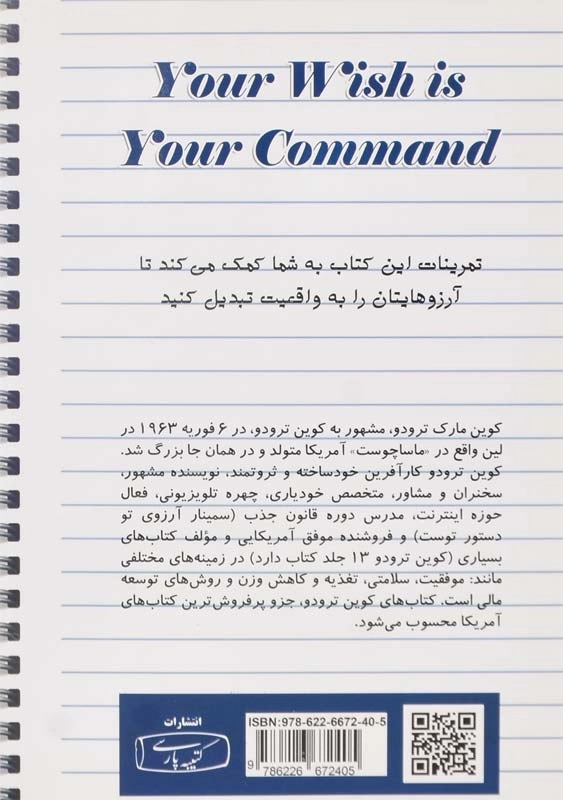 Your Wish is
Your Command
تمرینات این کتاب به شما کمک می‌کند تا
آرزوهایتان را به واقعیت تبدیل کنید
کوین مارک ترودو، مشهور به کوین ترودو، در ۶ فوریه ۱۹۶۳ در
لین واقع در «ماساچوست» آمریکا متولد و در همان جا بزرگ شد.
کوین ترودو کارآفرین خودساخته و ثروتمند، نویسنده مشهور،
سخنران و مشاور، متخصص خودیاری، چهره تلویزیونی، فعال
حوزه اینترنت، مدرس دوره قانون جذب (سمینار آرزوی تو
دستور توست) و فروشنده موفق آمریکایی و مؤلف کتاب‌های
بسیاری (کوین ترودو ۱۳ جلد کتاب دارد) در زمینه‌های مختلفی
مانند: موفقیت، سلامتی، تغذیه و کاهش وزن و روش‌های توسعه
مالی است. کتاب‌های کوین ترودو، جزو پرفروش‌ترین کتاب‌های
آمریکا محسوب می‌شود.
انتشارات
کتیبه پارسی
ISBN: 978-622-6672-40-5
9 786226 672405